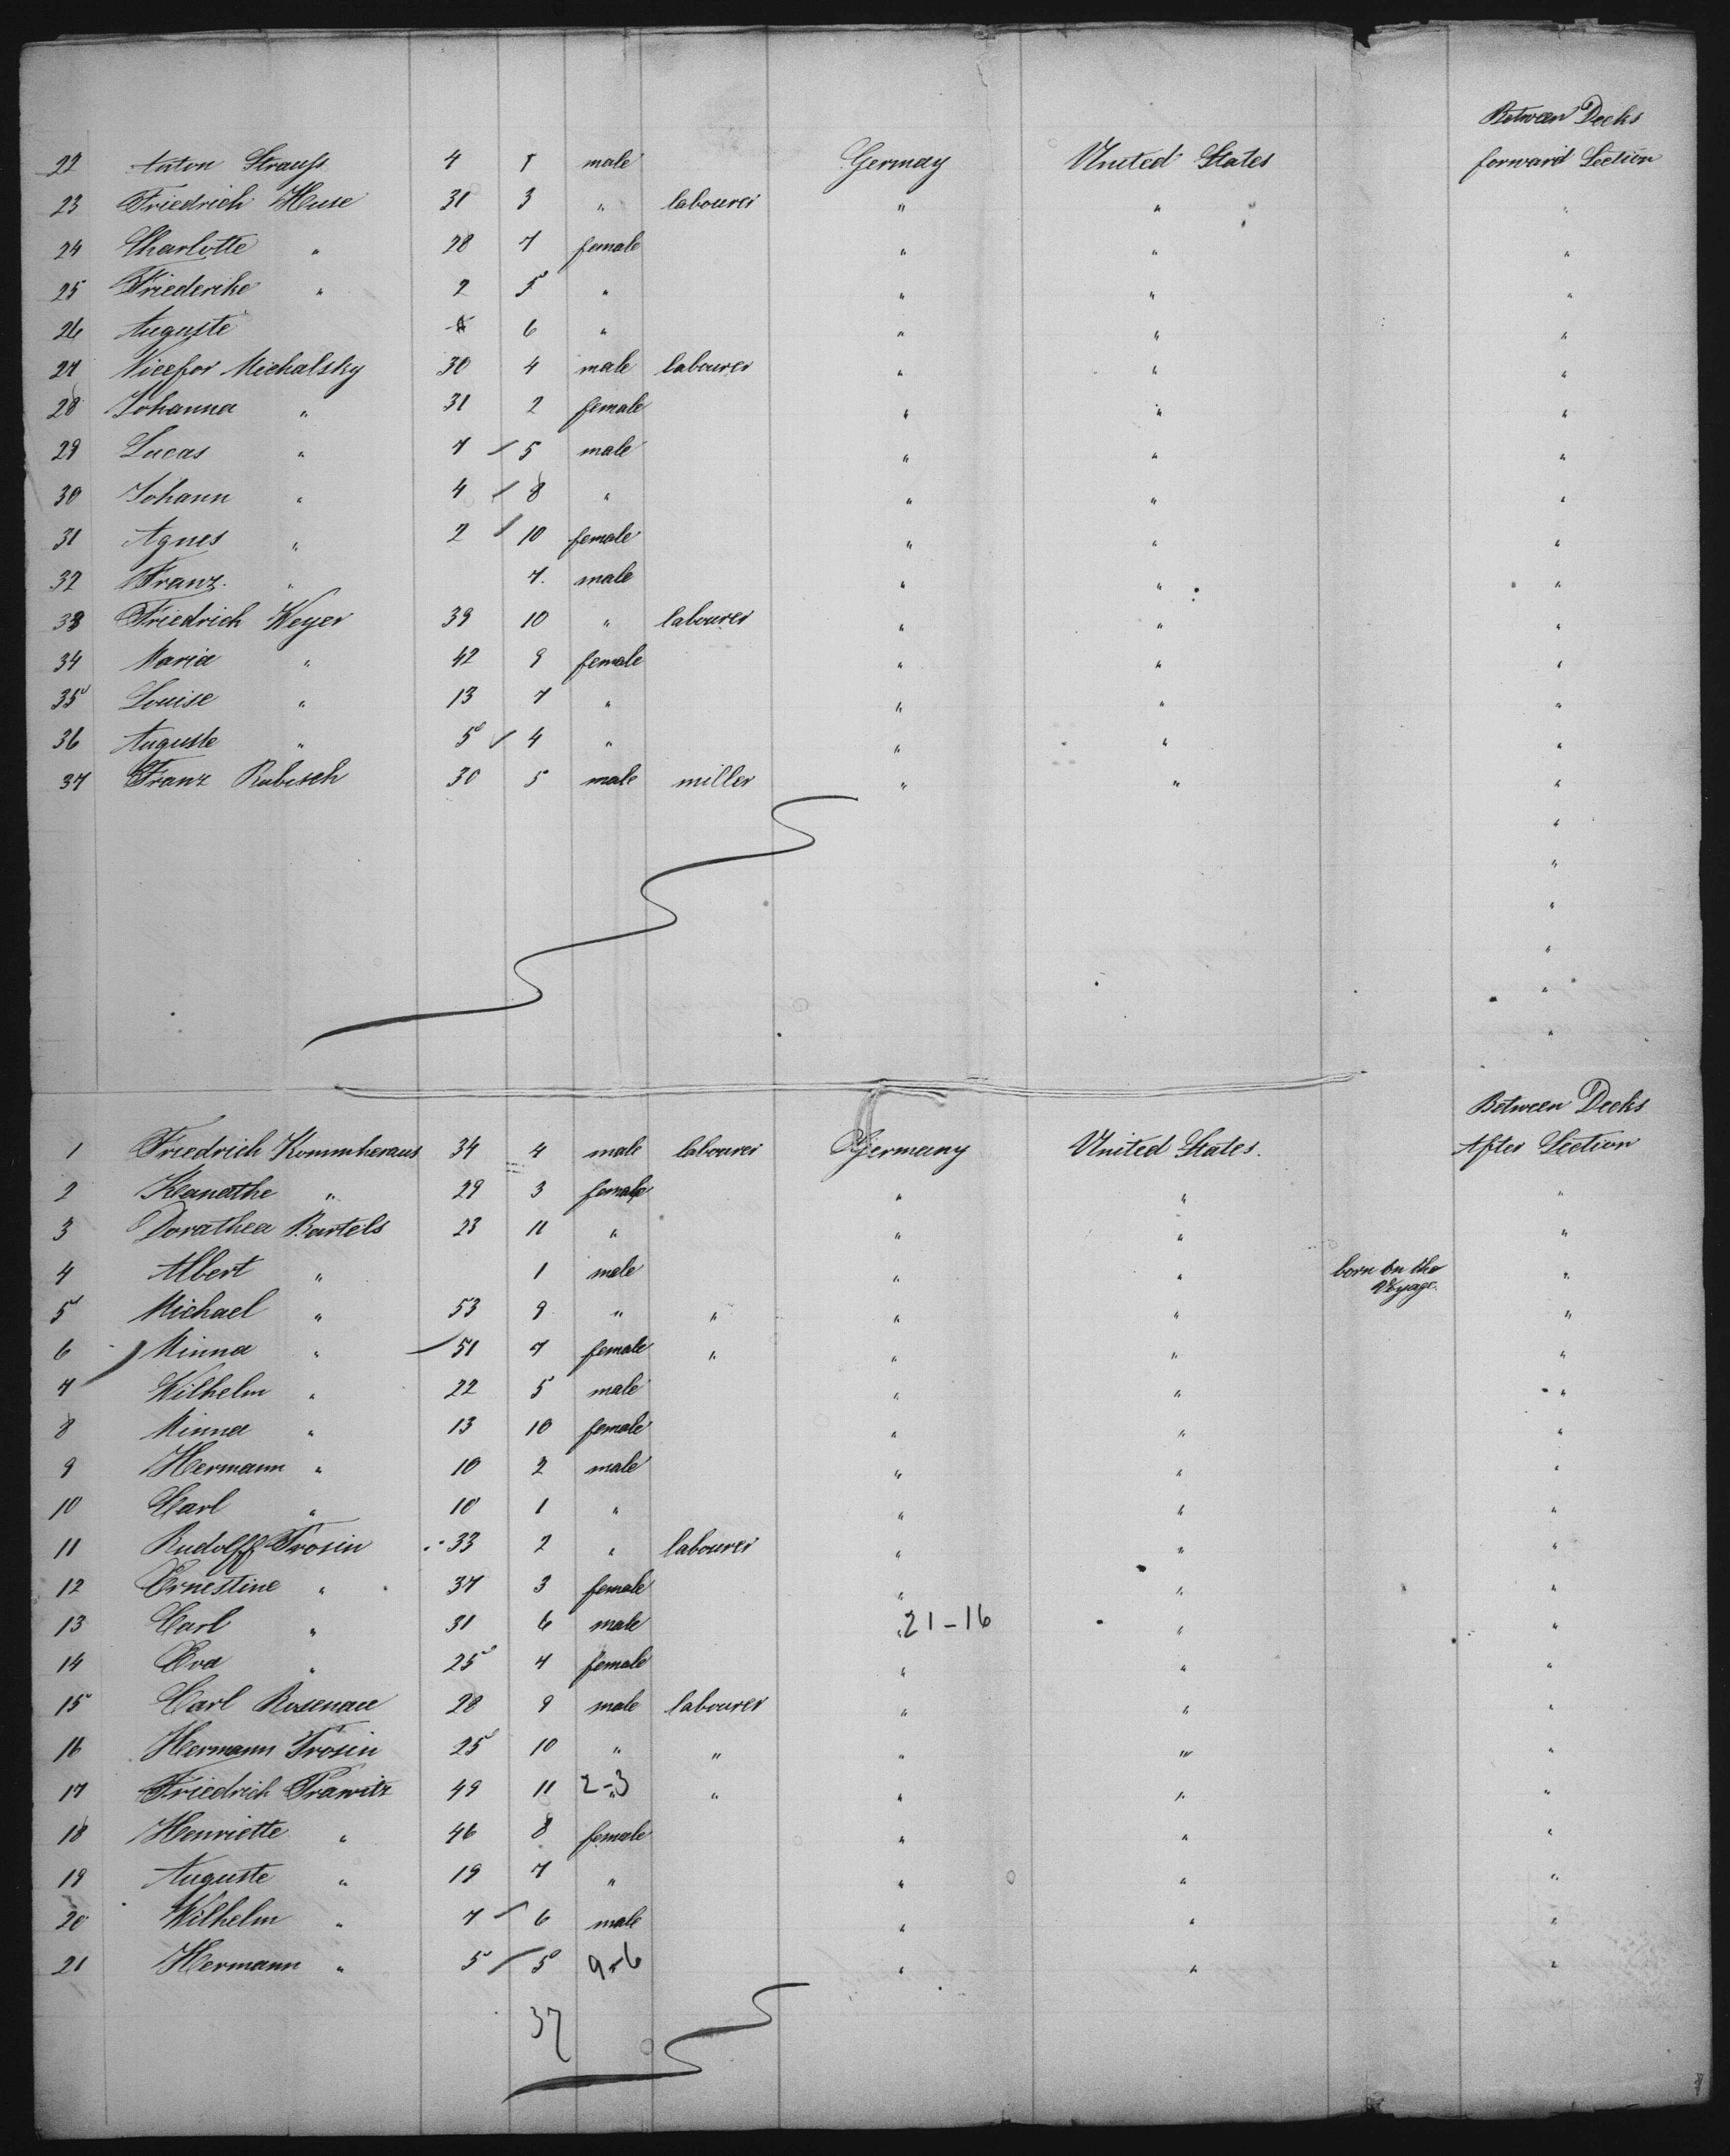 Between Decks
22 Anton Strauss 4 male Germay United States forward Section
23 Friedrich Huse 31 3 " labourer " " "
24 Charlotte " 28 7 female " " "
25 Friederike " 2 5 " " " "
26 Auguste 6 " " " "
27 Nicefor Michalsky 30 4 male labourer " " "
28 Johanna " 31 2 female " " "
29 Lucas " 7 / 5 male " " "
30 Johann " 4 / 8 " " " "
31 Agnes " 2 / 10 female " " "
32 Franz " 7 male " " "
33 Friedrich Weyer 39 10 " labourer " " "
34 Maria " 42 9 female " " "
35 Louise " 13 7 " " " "
36 Auguste " 5 / 4 " " " "
37 Franz Rubisch 30 5 male miller " " "
"
"
"
"
"
"
Between Decks
1 Friedrich Kommheraus 34 4 male labourer Germany United States. After Section
2 29 3 female " " "
3 Dorathea Bartels 23 11 " " " "
4 Albert " 1 male " " born on the Voyage. "
5 Michael " 53 9 " " " " "
6 Minna " 51 7 female " " " "
7 Wilhelm " 22 5 male " " "
8 Minna " 13 10 female " " "
9 Hermann " 10 2 male " " "
10 Carl " 10 1 " " " "
11 Rudolff Trosin 33 2 " labourer " " "
12 Ernestine " 37 3 female " " "
13 Carl " 31 6 male " 21-16 " "
14 Eva " 25 4 female " " "
15 Carl Rosenau 28 9 male labourer " " "
16 Hermann Trosin 25 10 " " " " "
17 Friedrich Prawitz 49 11 2-3 " " " " "
18 Henriette " 46 8 female " " "
19 Auguste " 19 7 " " " "
20 Wilhelm " 7 / 6 male " " "
21 Hermann " 5 / 5 9-6 " " "
37